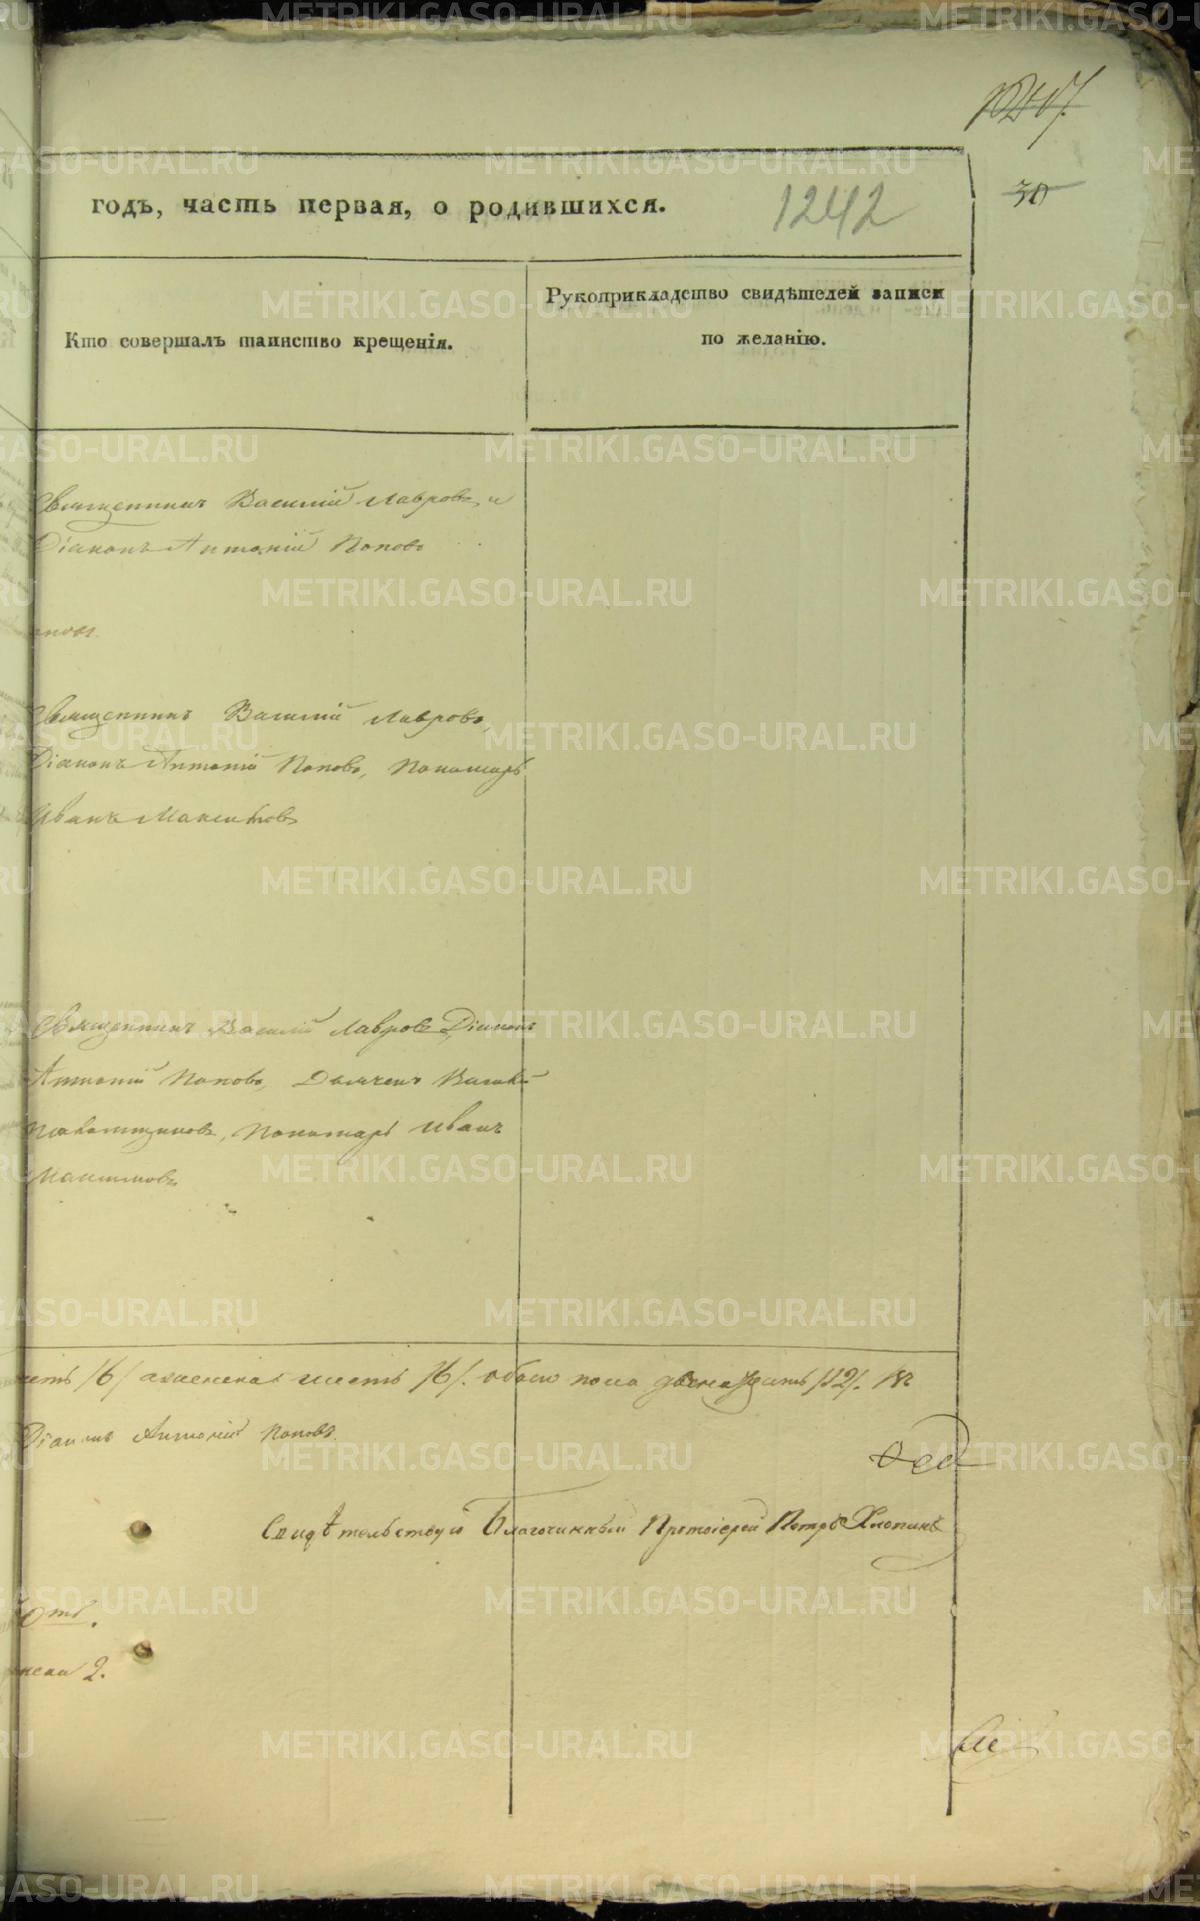 30
годъ, часть первая, о родившихся. 1242
Кто совершалъ таинство крещенія.
Рукоприкладство свидѣтелей записи
по желанію.
Священникъ Василій Лавровъ и
Діаконъ Антоній Поповъ
Священникъ Василій Лавровъ,
Діаконъ Антоній Поповъ, Пономарь
Иванъ Максимовъ
Священникъ Василій Лавровъ Діаконъ
Антоній Поповъ, Дьячекъ Василій
Пономарь Иванъ
Максимовъ
/6/ а женска шесть /6/. обоего пола двенадцать /12/.
Діаконъ Антоній Поповъ.
Свидѣтельствую Благочинный Протоіерей Петръ Хлопинъ
2.
METRIKI.GASO-URAL.RU